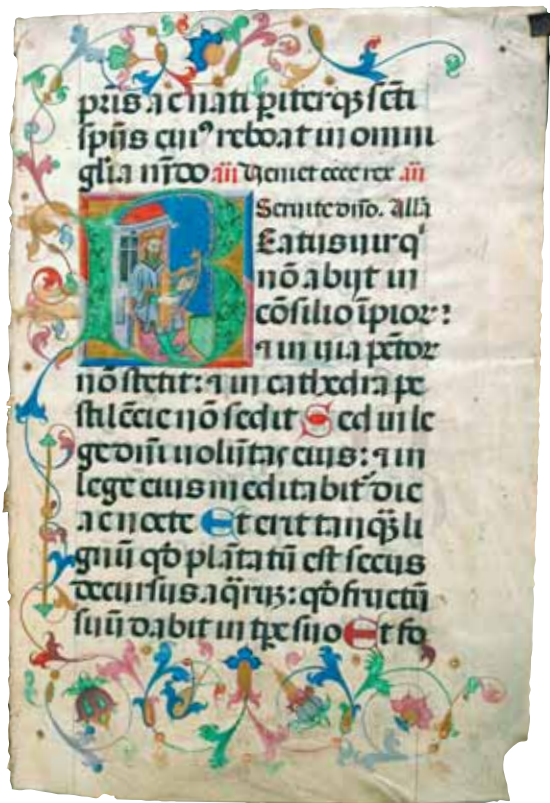 pris ac nati piterqꝫ scti
spūs cui⁹ reboat in omni
glia mūdo aīī Veniet ecce rex aīī
Seruite dño. Allā
Beatus uir q
nō abijt in
cōsilio īpior:
⁊ in uia pctor
nō stetit: ⁊ in cathedra pe
stilēcie nō sedit Sed in le
ge dñi uolūtas eius: ⁊ in
lege eius meditabit᷑ die
ac nocte Et erit tanqꝫ li
gnū qd̄ plātatū est secus
decursus aq̄ruꝫ: qd̄ fructū
suū dabit in tpe suo Et fo